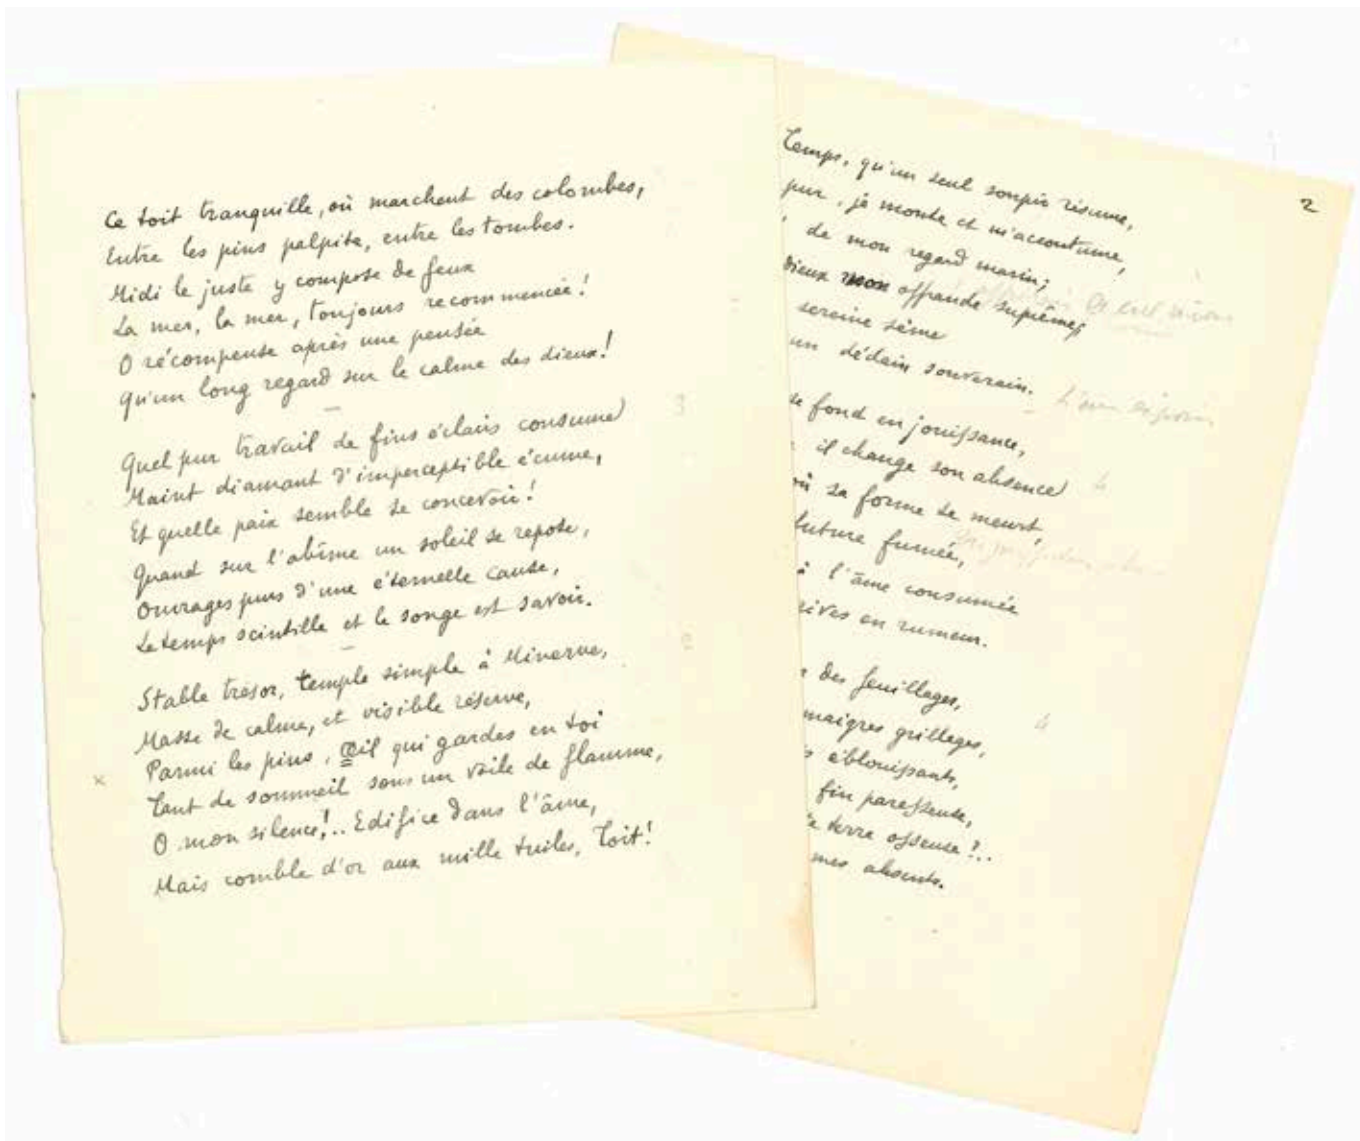 Ce toit tranquille, où marchent des colombes,
Entre les pins palpite, entre les tombes.
Midi le juste y compose de feux
La mer, la mer, toujours recommencée!
O récompense après une pensée
Qu'un long regard sur le calme des dieux!
3
Quel pur travail de fins éclairs consume
Maint diamant d'imperceptible écume,
Et quelle paix semble se concevoir!
Quand sur l'abîme un soleil se repose,
Ouvrages purs d'une éternelle cause,
Le temps scintille et le songe est savoir.
Stable trésor, temple simple à Minerve,
Masse de calme, et visible réserve,
Parmi les pins, Œil qui gardes en toi
x Tant de sommeil sous un voile de flamme,
O mon silence!.. Edifice dans l'âme,
Mais comble d'or aux mille tuiles, Toit!
2
Temps, qu'un seul soupir résume,
pur, je monte et m'accoutume,
de mon regard marin;
dieux mon offrande suprême;
sereine sème
un dédain souverain.
se fond en jouissance,
il change son absence
où sa forme se meurt,
future fumée,
à l'âme consumée
rives en rumeur.
des feuillages,
maigres grillages,
éblouissants,
fin paresseuse,
terre osseuse?..
mes absents.